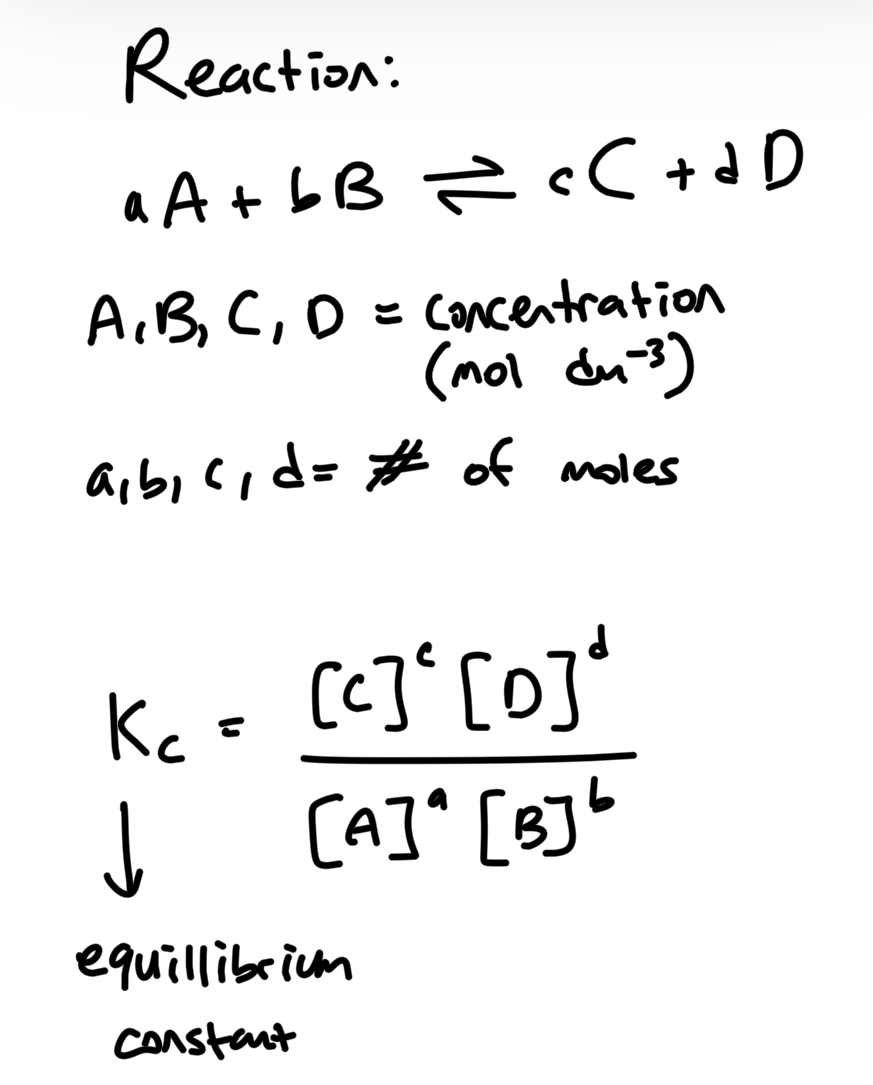 Reaction:
aA + bB ⇌ cC + dD
A, B, C, D = concentration
(mol dm⁻³)
a, b, c, d = # of moles
Kc = [C]ᶜ [D]ᵈ / [A]ᵃ [B]ᵇ
↓
equillibrium
constant